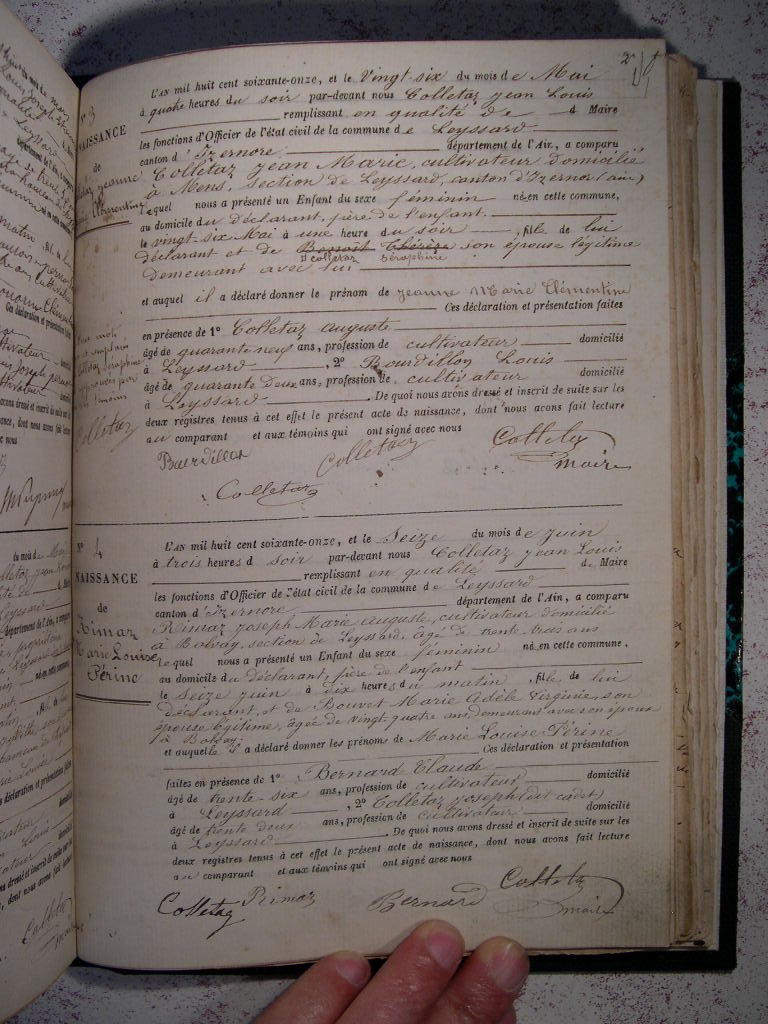 2
N° 3
NAISSANCE
de
Jeanne
Clémentine
L'AN mil huit cent soixante-onze, et le Vingt-six du mois de Mai
à quatre heures du soir par-devant nous Colletaz jean Louis
remplissant en qualité de d Maire
les fonctions d'Officier de l'état civil de la commune de Leyssard
canton d'Izernore département de l'Ain, a comparu
Colletaz jean Marie, cultivateur domicilié
à Mens, section de Leyssard, canton d'Izernore (ain)
lequel nous a présenté un Enfant du sexe féminin né en cette commune,
au domicile du déclarant, père de l'enfant.
le vingt-six Mai à une heure du soir , fille de lui
déclarant et de Benoît Thérèse son épouse légitime
Colletaz Séraphine
demeurant avec lui
et auquel il a déclaré donner le prénom de jeanne Marie Clémentine
Ces déclaration et présentation faites
en présence de 1° Colletaz auguste
âgé de quarante neuf ans, profession de cultivateur domicilié
à Leyssard , 2° Bourdillon Louis
âgé de quarante deux ans, profession de cultivateur domicilié
à Leyssard . De quoi nous avons dressé et inscrit de suite sur les
deux registres tenus à cet effet le présent acte de naissance, dont nous avons fait lecture
au comparant et aux témoins qui ont signé avec nous
Colletaz Séraphine
Colletaz
Bourdillon Colletaz Colletaz
maire
Colletaz
N° 4
NAISSANCE
de
Rimaz
Marie Louise
Périne
L'AN mil huit cent soixante-onze, et le Seize du mois de juin
à trois heures d soir par-devant nous Colletaz jean Louis
remplissant en qualité de Maire
les fonctions d'Officier de l'état civil de la commune de Leyssard
canton d'Izernore département de l'Ain, a comparu
Rimaz joseph Marie Auguste, cultivateur domicilié
à Bolvay, section de Leyssard, âgé de trente trois ans
lequel nous a présenté un Enfant du sexe féminin né en cette commune,
au domicile du déclarant, père de l'enfant
le Seize juin à dix heures du matin , fille de lui
déclarant, et de Bouvet Marie Adèle Virginie, son
épouse légitime, âgée de vingt quatre ans, demeurant avec son époux
à Bolvay.
et auquel il a déclaré donner les prénoms de Marie Louise Périne
Ces déclaration et présentation
faites en présence de 1° Bernard Claude
âgé de trente-six ans, profession de cultivateur domicilié
à Leyssard , 2° Colletaz joseph (dit cadet)
âgé de trente deux ans, profession de cultivateur domicilié
à Leyssard . De quoi nous avons dressé et inscrit de suite sur les
deux registres tenus à cet effet le présent acte de naissance, dont nous avons fait lecture
au comparant et aux témoins qui ont signé avec nous
Colletaz Rimaz Bernard Colletaz
maire